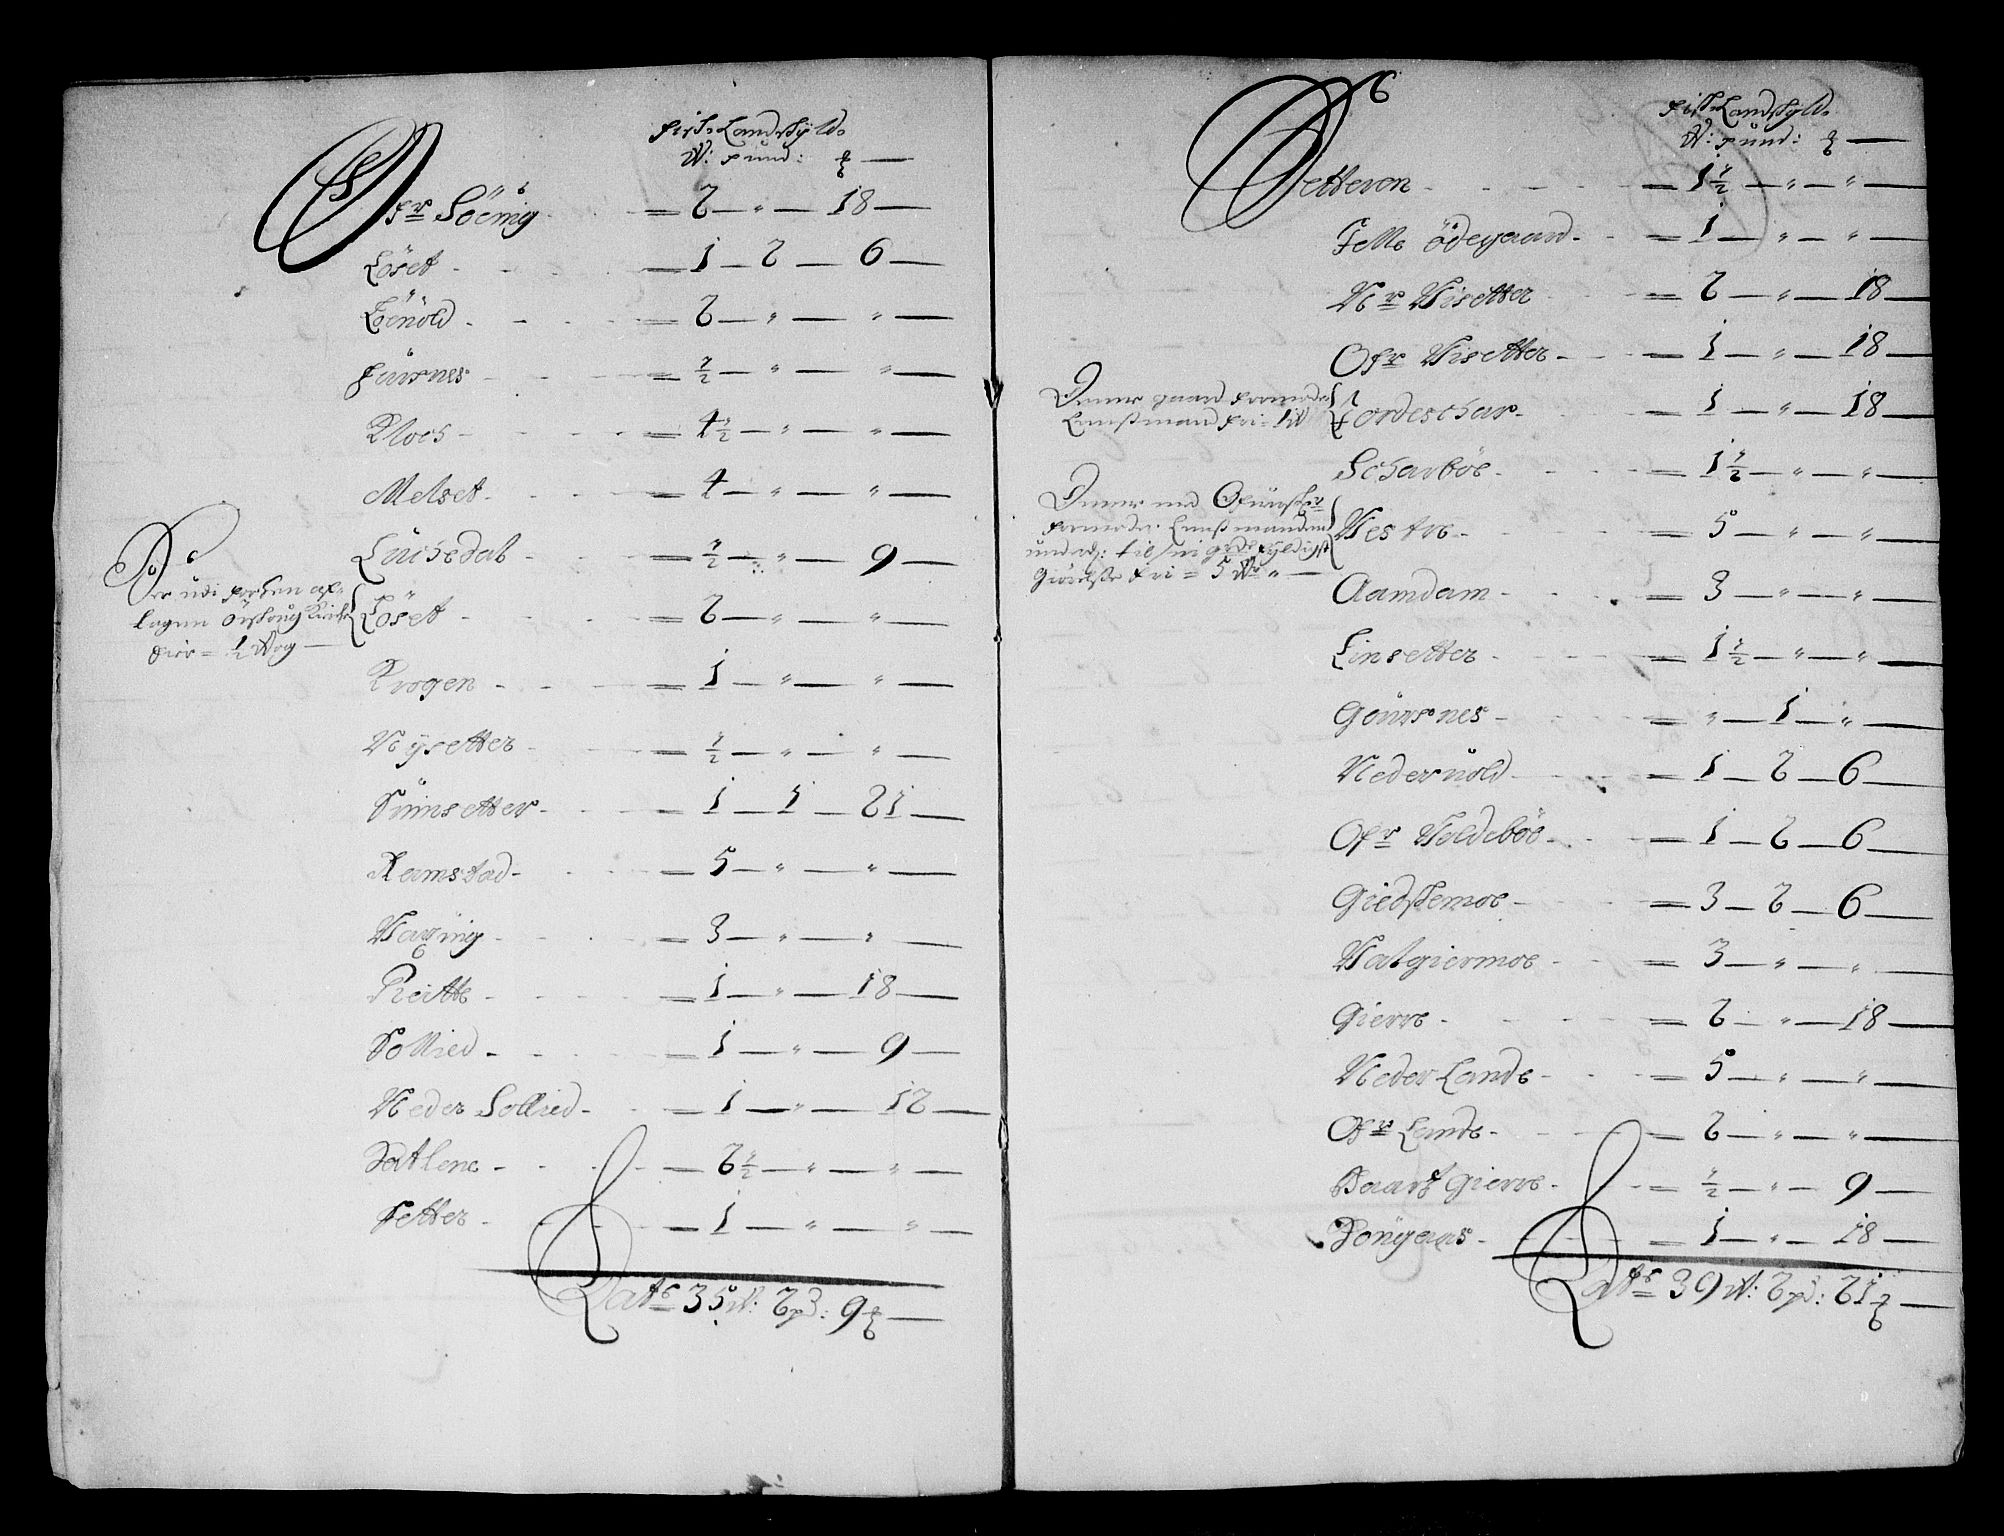 Fisk Landskyld
W: pund: ℔
Ofr Söeüig = 2 — " — 18 —
Löset - = 1 — 2 — 6 —
Löeüold - = 2 — " — " —
Fürnes - = ½ — " — " —
Kloes - = 4½ — " — " —
Melset - = 4 — " — " —
Lüchedal - = ½ — " — 9 —
Löset - = 2 — " — " —
Krogen - = 1 — " — " —
Nÿsetter - = ½ — " — " —
Sünsetter - = 1 — 1 — 21 —
Ramstad - = 5 — " — " —
Vaging - = 3 — " — " —
Reitte - = 1 — " — 18 —
Sollied - = 1 — " — 9 —
Neder Sollied - = 1 — " — 12 —
Satlene - = 2½ — " — " —
Setter - = 1 — " — " —
Lats 35 W: 2 pd: 9 ℔ —
Der udi forhen af-
lagen Örschoug Kirche
frir = ½ Wog —
Fisk Landskyld
W: pund: ℔ —
Setteren - = 1½ — " — " —
Felle ödegaard - = 1 — " — " —
Nr Visetter = 2 — " — 18 —
Ofr Visetter - = 1 — " — 18 —
Fordeschar - = 1 — " — 18 —
Scharböe - = 1½ — " — " —
Vestre - = 5 — " — " —
Aamdam - = 3 — " — " —
Linsetter - = 1½ — " — " —
Goürsnes - = " — 1 — " —
Nederüold - = 1 — 2 — 6 —
Ofr Voldeböe - = 1 — 2 — 6 —
Giedskemoe - = 3 — 2 — 6 —
Valgiermoe - = 3 — " — " —
Gierre - = 2 — " — 18 —
Neder Lande - = 5 — " — " —
Ofr Lande - = 2 — " — " —
Baart Gierre - = ½ — " — 9 —
Tongaas - = 1 — " — 18 —
Lats 39 W: 2 pd: 21 ℔ —
Denne gaard formeder
Lensmand fri = 1 W
formeder Lensmanden
fri = 5 W "